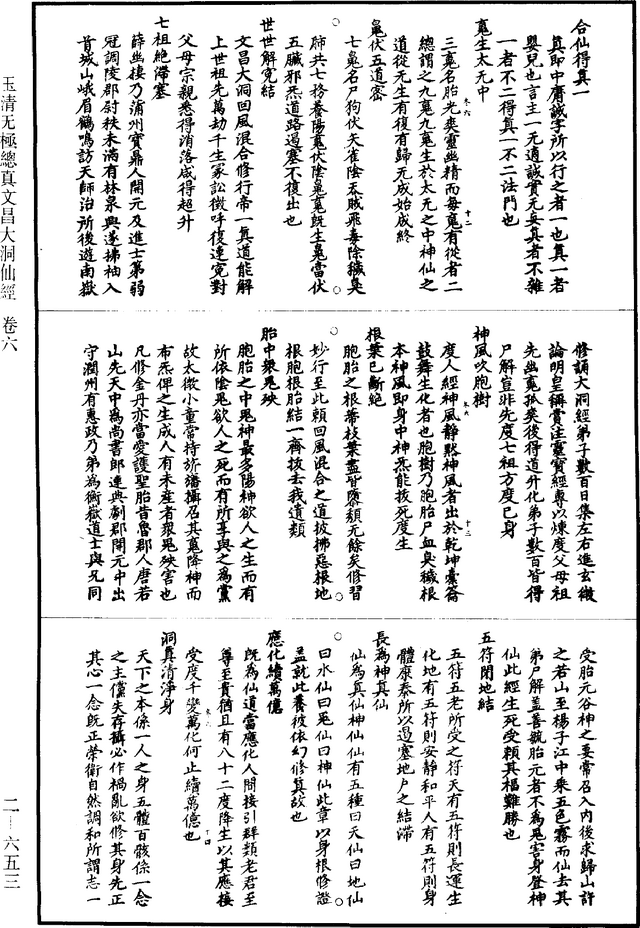 合仙得真一
真即中膺誠字所以行之者一也真一者
嬰兒也言主一无適誠實无妄真者不雜
一者不二得真一不二法門也
䰟生太元中
三䰟名胎光爽靈幽精而每䰟有從者二
總謂之九䰟九䰟生於太元之中神仙之
道從无生有復有歸无成始成終
䰟伏五道密
七䰟名尸狗伏天雀陰天賊飛毒除穢臭
肺共七務養陽䰟伏陰䰟䰟既生䰟當伏
五臟邪炁道路過塞不復出也
世世解寃結
文昌大洞回風混合修行帝一真道能解
上世祖先萬劫千生冢訟徵呼復連寃對
父母宗親悉得消落咸得超升
七祖絶滯塞
薛幽棲乃蒲州寶鼎人開元及進士第弱
冠調陵郡尉秩未滿有林泉興遂拂袖入
青城山峨眉鶴鳴訪天師治所後遊南嶽
修誦大洞經弟子數百日集左右進玄微
論明皇稱賞注靈寶經專以煉度父母祖
先幽䰟孤爽後得道升化弟子數百皆得
尸解豈非先度七祖方度已身
神風吹胞樹
度人經神風靜黙神風者出於乾坤橐籥
鼓舞生化者也胞樹乃胞胎尸血臭穢根
本神風即身中神炁能拔死度生
根葉已斷絶
胞胎之根蔕枝葉盡皆隳頹无餘矣修習
妙行至此頼回風混合之道披拂惡根地
根胞根胎結一齊拔去我遺類
胎中衆鬼殃
胞胎之中鬼神最多陽神欲人之生而有
所依陰鬼欲人之死而有所享與之為黨
故太微小童常持旂旛攝召其䰟降神而
布炁俾之生成人有未産者衆鬼殃害也
凡修金丹亦當愛護聖胎昔魯郡人唐若
山先天中爲尚書郎連典劇郡開元中出
守潤州有惠政乃弟為衡嶽道士與兄同
受胎元谷神之要常召入内後求歸山許
之若山至楊子江中乘五色霧而仙去其
弟尸解蓋善毓胎元者不為鬼害身登神
仙此經生死受頼其福難勝也
五符閉地結
五符五老所受之符天有五符則長運生
化地有五符則安靜和平人有五符則身
體康泰所以遏塞地戸之結滯
長為神真仙
仙為真仙神仙仙有五種曰天仙曰地仙
曰水仙曰鬼仙曰神仙此章以身根修證
盖就此養彼依幻修真故也
應化續萬億
既為仙道當應化人間接引群類老君至
尊至貴猶且有八十二度降生以其應接
受度千變萬化何止續萬億也
洞真清淨身
天下之本係一人之身五體百骸係一念
之主儻失存攝必作禍亂欲修其身先正
其心一念既正榮衛自然調和所謂志一
玉清无極總真文昌大洞仙經　卷六
二—六五三
卷六　十二
卷六　十三
卷六　十四